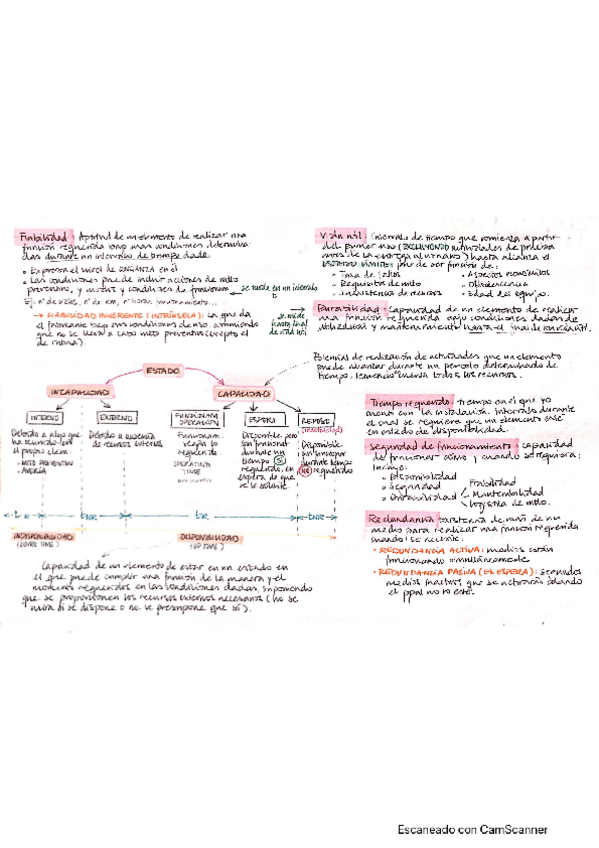 Fiabilidad: Aptitud de un elemento de realizar una
función requerida bajo unas condiciones determina-
das durante un intervalo de tiempo dado.
• Expresa el nivel de CONFIANZA en él
• Las condiciones puede incluir acciones de mtto
preventivo, y modos y condiciones de
se mide en un intervalo
t
Ej: nº de ciclos, nº de km, nº horas, funcionamiento...
→ FIABILIDAD INHERENTE (INTRÍNSECA): La que da
el fabricante bajo unas condiciones de uso, asumiendo
que no se lleva a cabo mtto preventivo (excepto el
de rutina).
se mide
hasta final
de vida útil
Vida útil: Intervalo de tiempo que comienza a partir
del primer uso (EXCLUYENDO actividades de prueba
antes de la entrega al usuario) hasta alcanza el
ESTADO LÍMITE: puede ser función de:
• Tasa de fallos
• Aspectos económicos
• Requisitos de mtto
• Obsolescencia
• Inexistencia de recursos
• Edad del equipo.
Durabilidad: Capacidad de un elemento de realizar
una función requerida bajo condiciones dadas de
utilización y mantenimiento hasta el final de su vida útil.
ESTADO
INCAPACIDAD
CAPACIDAD
Potencias de realización de actividades que un elemento
puede alcanzar durante un periodo determinado de
tiempo, teniendo en cuenta todos los recursos.
INTERNO
EXTERNO
FUNCIONAM
OPERACIÓN
ESPERA
REPOSO
(inactividad)
Debido a algo que
ha ocurrido en
el propio elem
- MTTO PREVENTIVO
- AVERÍA
Debido a ausencia
de recursos externos
Funcionam.
según lo
requerido
OPERATING
TIME
Disponible pero
sin funcionar
durante un
tiempo SI
requerido, en
espera de que
se le solicite
Disponible
sin funcionar
durante tiempo
NO requerido
tNR
tR
tNR
INDISPONIBILIDAD
(DOWN TIME)
DISPONIBILIDAD
(UP TIME)
Capacidad de un elemento de estar en un estado en
el que puede cumplir una función de la manera y el
momento requeridos en las condiciones dadas, suponiendo
que se proporcionen los recursos externos necesarios (no se
mira si se dispone o no. se presupone que sí).
Tiempo requerido: tiempo en el que yo
cuento con la instalación. Intervalo durante
el cual se requiere que un elemento esté
en estado de disponibilidad.
Seguridad de funcionamiento: capacidad
de funcionar cómo y cuando se requiera:
Incluye:
• Disponibilidad
• Seguridad
• Durabilidad
Fiabilidad
Mantenibilidad
Logística de mtto.
Redundancia: Existencia de más de un
medio para realizar una función requerida
cuando se necesite:
• REDUNDANCIA ACTIVA: medios están
funcionando simultáneamente
• REDUNDANCIA PASIVA (EN ESPERA): segundos
medios inactivos que se activarán cuando
el ppal no lo esté.
Escaneado con CamScanner